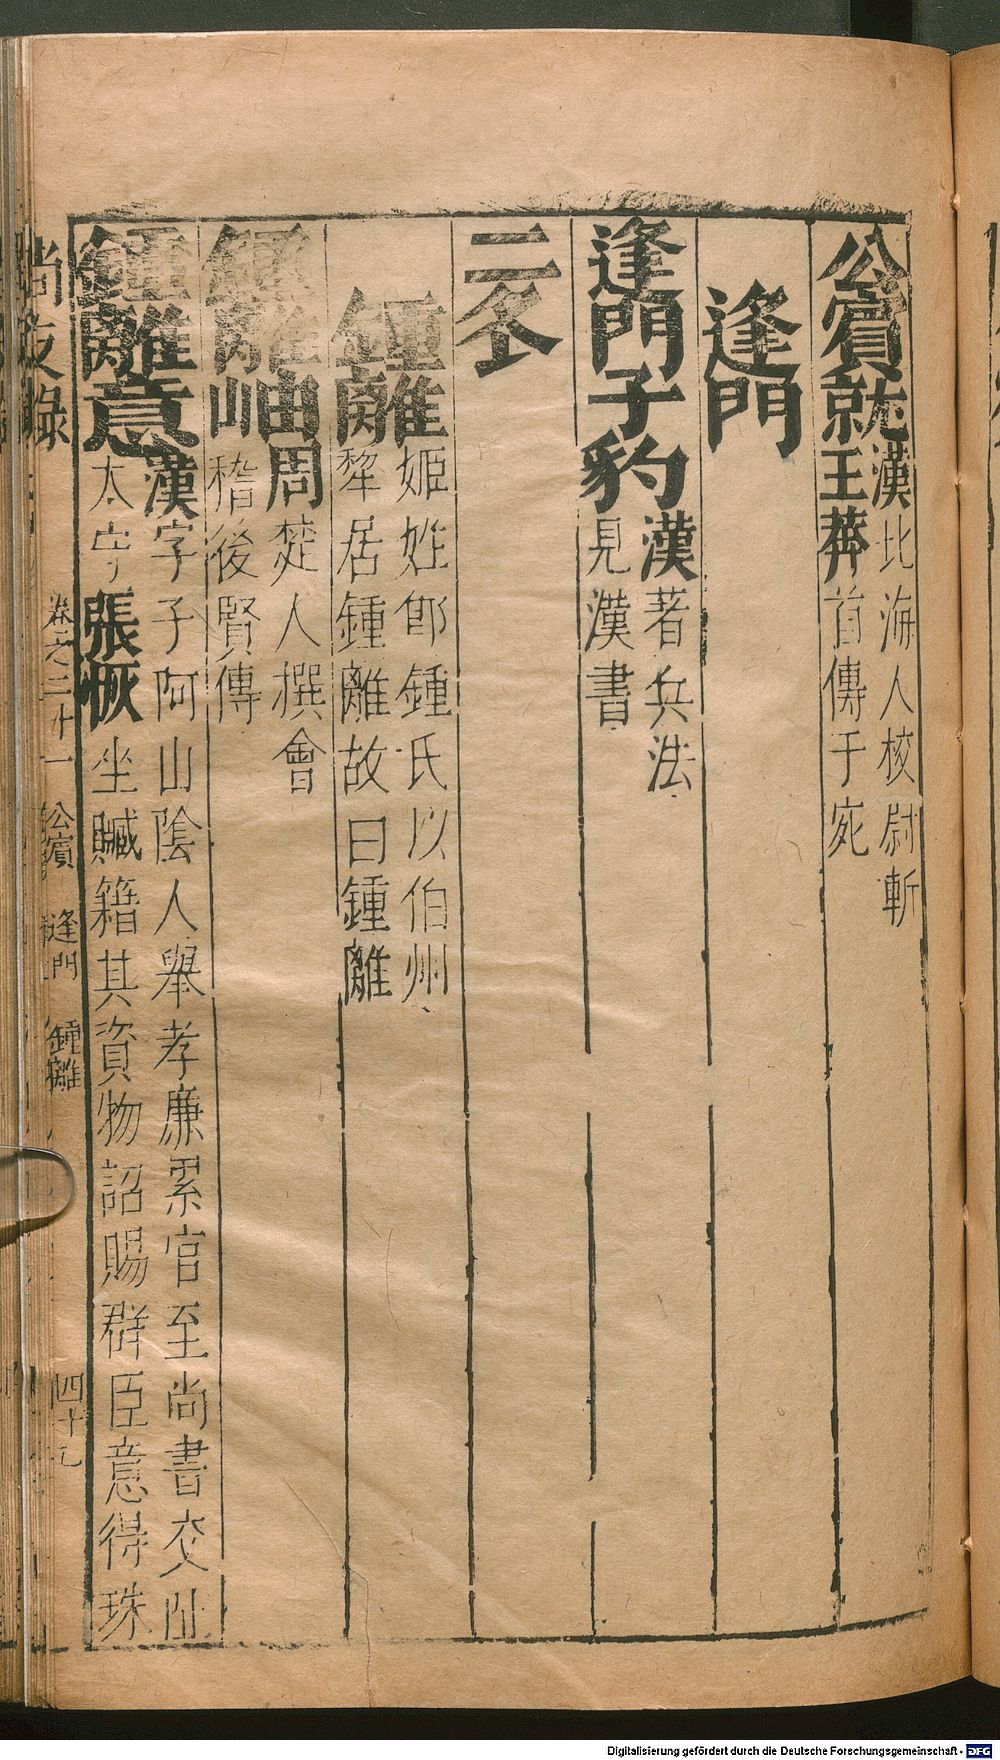 公賓就漢比海人校尉斬
王莽首傳于宛
逢門
逢門子豹漢著兵法
見漢書
二冬
鍾離姬姓郎鍾氏以伯州
犂居鍾離故曰鍾離
鍾離岫周楚人撰會
稽後賢傳
鍾離意漢字子阿山陰人舉孝廉累官至尚書交阯
太守張恢坐贓籍其資物詔賜群臣意得珠
尚友錄 卷之二十一 公賓 逢門 鍾離 四十七
Digitalisierung gefördert durch die Deutsche Forschungsgemeinschaft - DFG